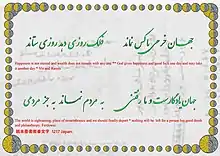 جهان خرمی با کس نماند فلک روزی دهد روزی ستاند
Happiness is not eternal and wealth does not remain with any one ** God gives happiness and good luck one day and may take it another day * Nie and Razeh
جهان یادگارست و ما رفتنی به مردم نماند به جز مردمی
The world is frightening, place of remembrance and we should finally depart * nothing will be left for a person but good deeds and philanthropy. Ferdowsi
1217 Japan